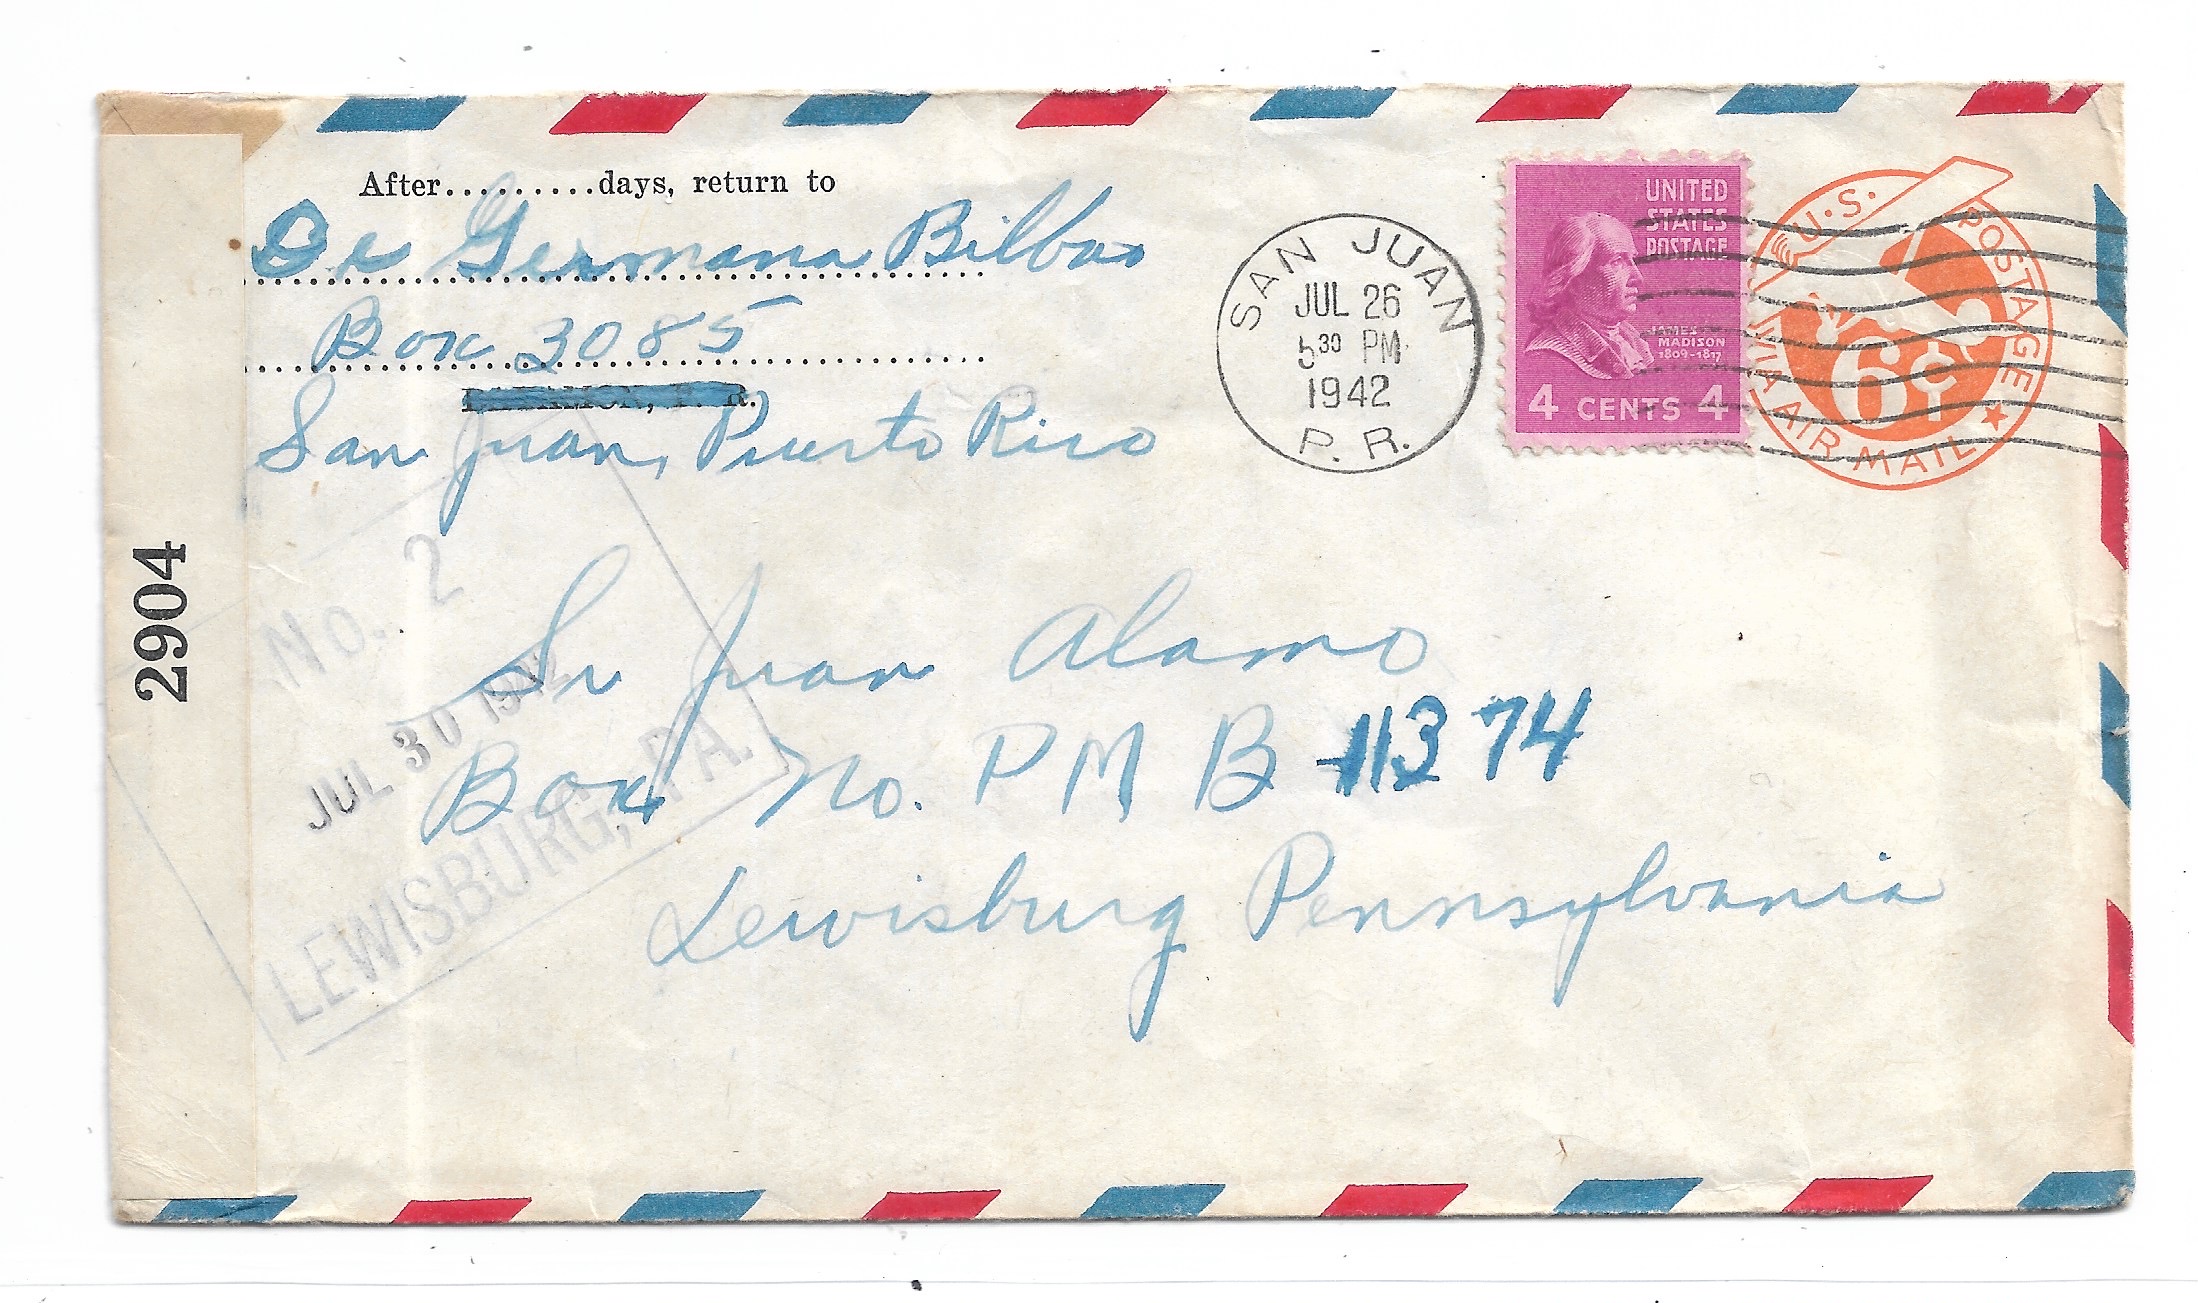 After.........days, return to
De Germana Bilbao
Box 3085
San Juan, Puerto Rico
SAN JUAN
JUL 26
5 30 PM
1942
P. R.
UNITED
STATES
POSTAGE
JAMES
MADISON
1809-1817
4 CENTS 4
U.S. POSTAGE
6¢
VIA AIR MAIL
2904
No. 2
JUL 30 1942
LEWISBURG, PA.
Sr Juan Alamo
Box No. PMB 11374
Lewisburg Pennsylvania